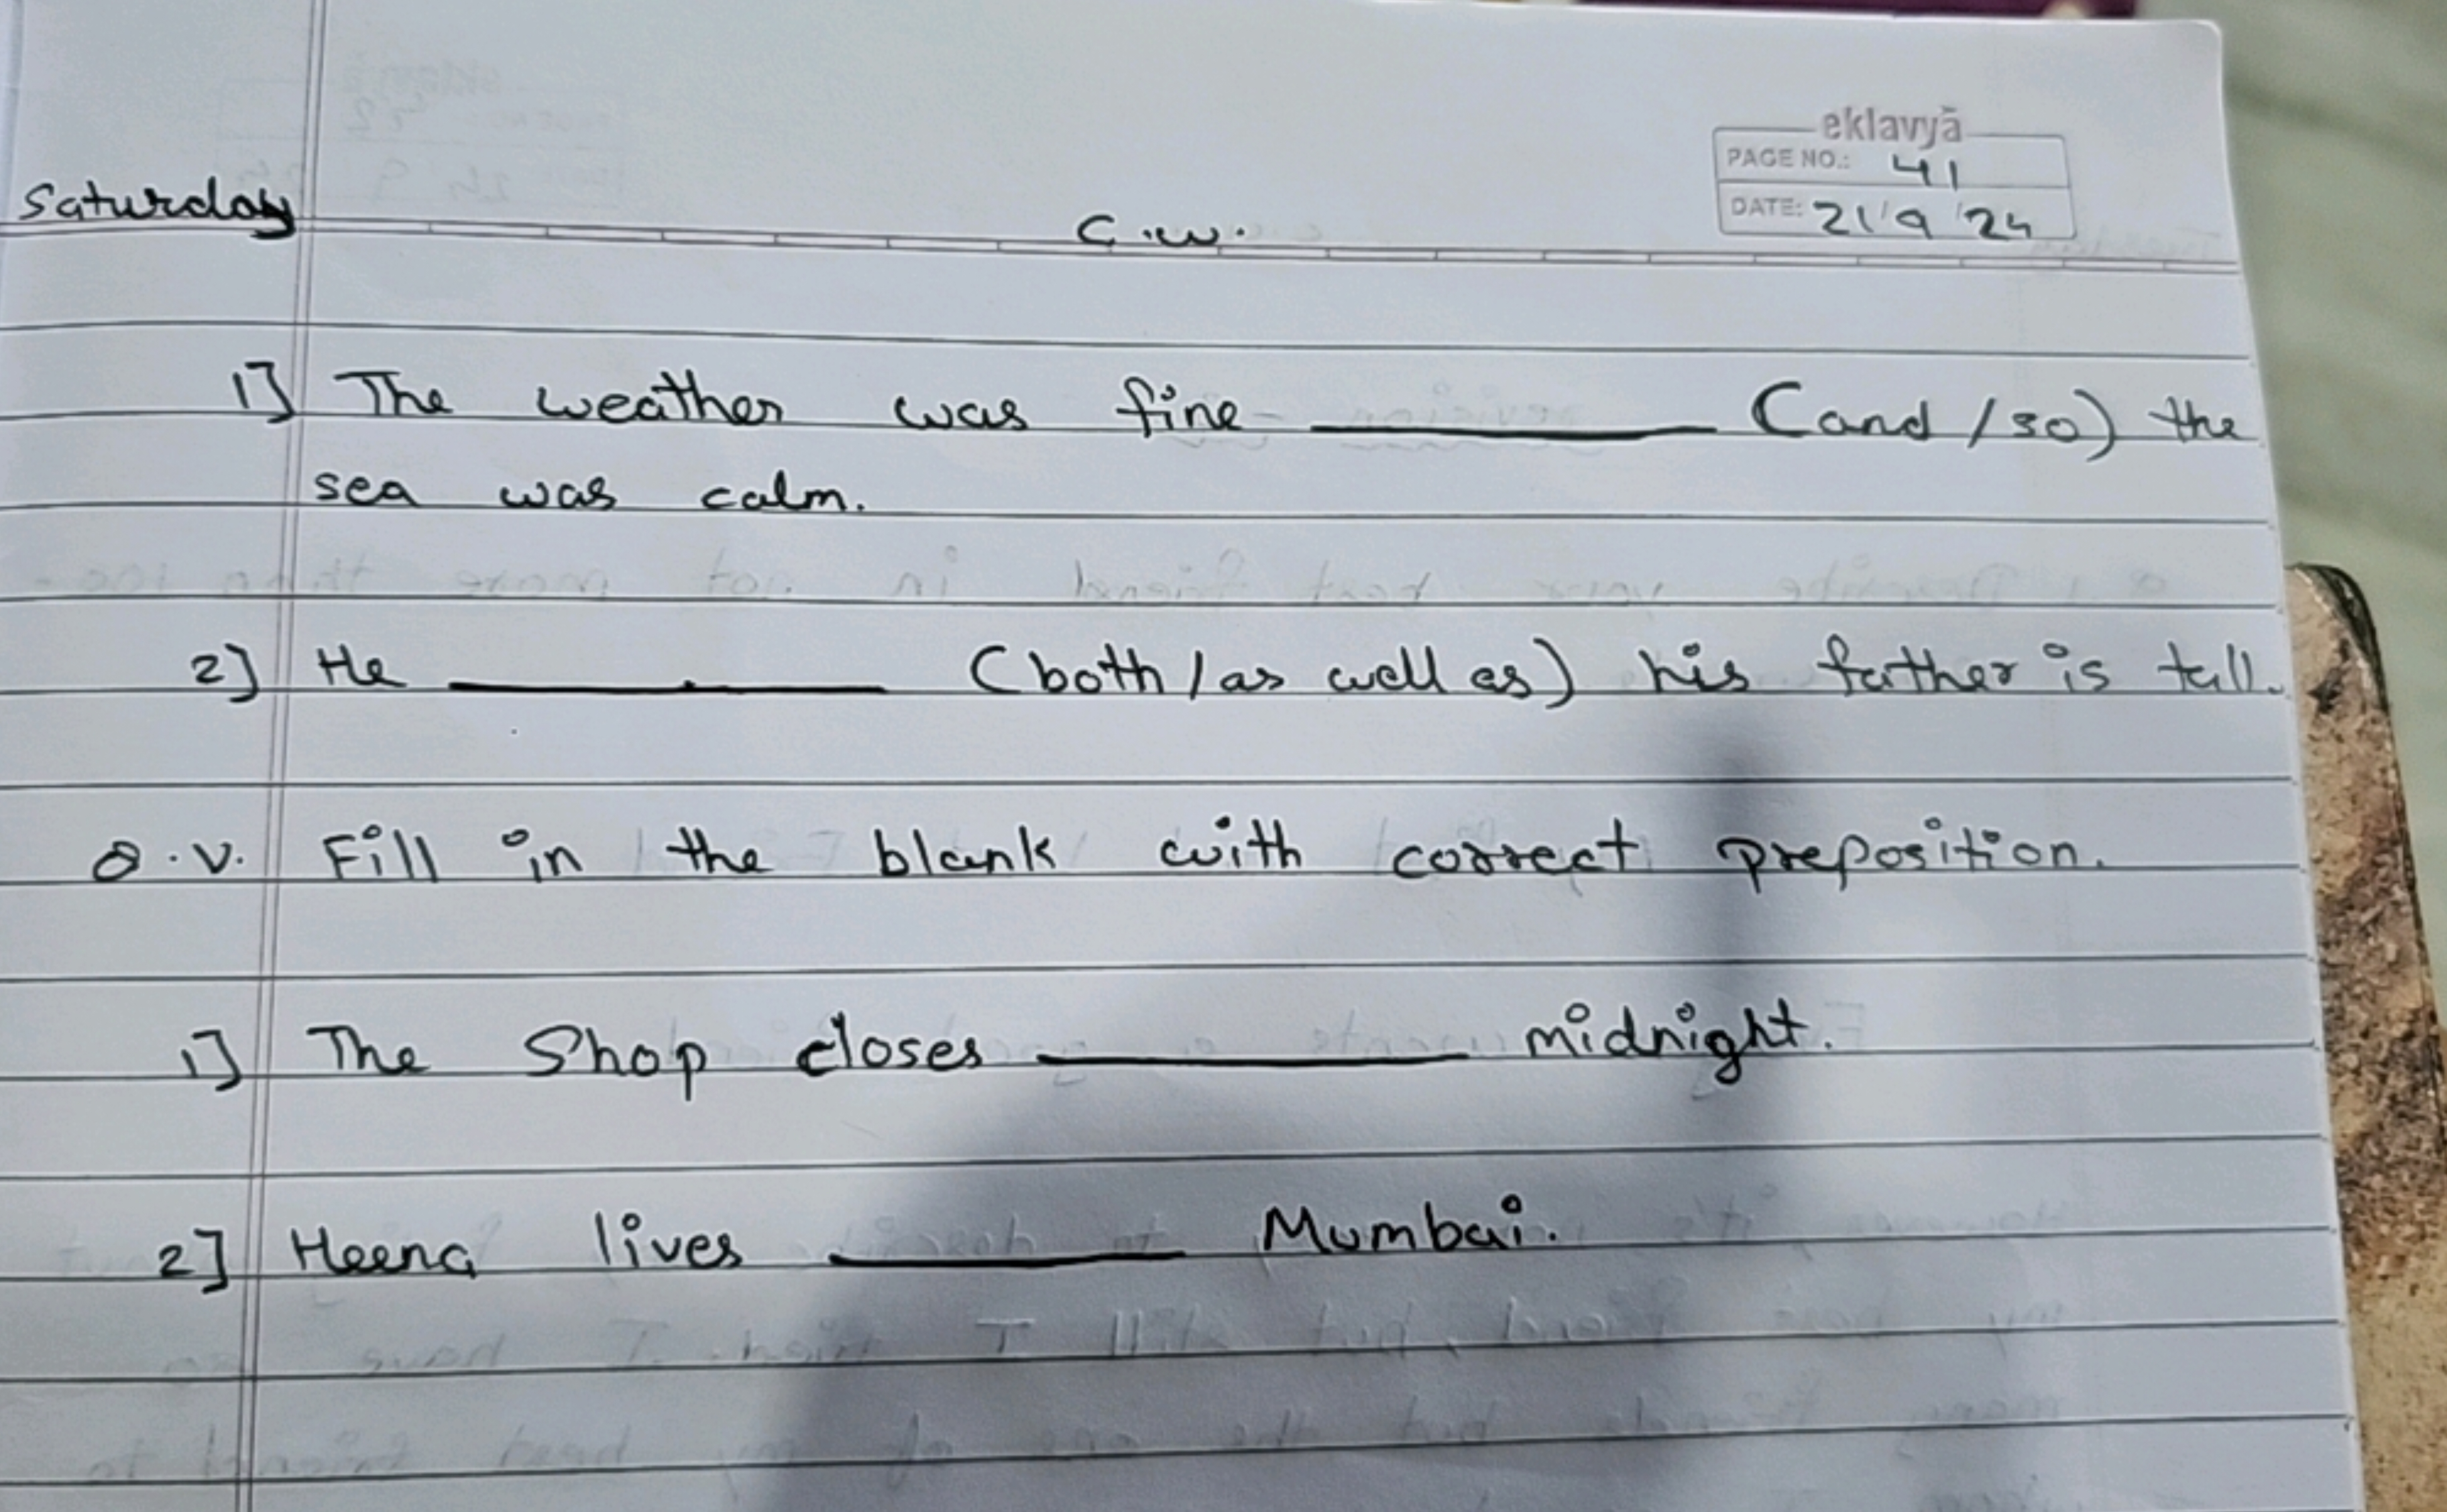 eklavyā
PAGE NO.: 41
DATE: 21/9/24
Saturday
C.W.
1] The weather was fine ________ (and/so) the
sea was calm.
2] He ________ (both/as well as) his father is tall.
Q.V. Fill in the blank with correct preposition.
1] The Shop closes ________ midnight.
2] Heena lives ________ Mumbai.